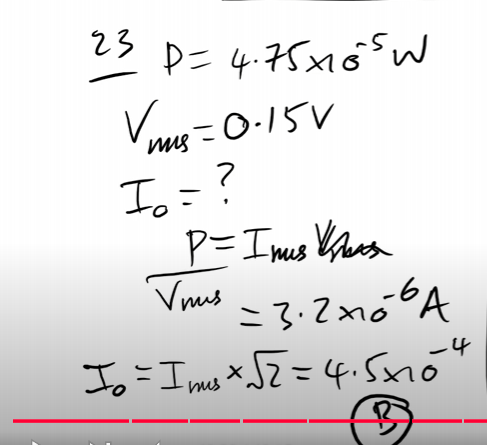 23 P = 4.75×10⁻⁵ W
Vrms = 0.15V
I₀ = ?
P = Irms Vrms
Vrms
= 3.2×10⁻⁶ A
I₀ = Irms × √2 = 4.5×10⁻⁴
B